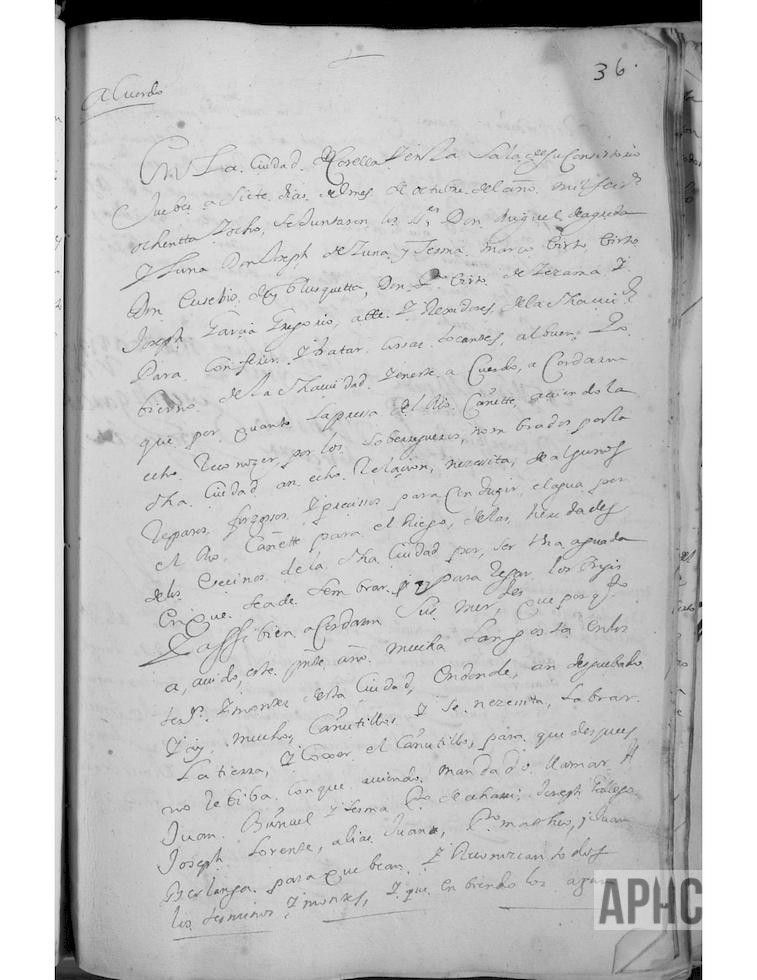 36.
Acuerdo
En La Ciudad de Corella Y en La Sala de su Consistorio
Juebes a Siete dias del mes de octubre del año mil seis.
ochentta Y ocho, se Juntaron los SS.res Don Miguel de agreda
Y Luna Don Joseph de Luna y Sesma marco birto birto
Don Eusebio de Blasquetta, Don birto de Lezama Y
Joseph Garcia Gregorio, alle. Y Rexidores de la dha Ciu.d
Para Conferir Y tratar cosas tocantes, al buen Go
bierno de la dha Ciudad Y enese a Cuerdo, a Cordaron
que por quanto La pressa del Rio Cañette, aviendola
echo Reconozer por los Sobreagueros, nombrados por la
dha Ciudad an echo Relacion, nezesita, de algunos
Reparos forzosos Y precissos para Conduzir, el agua por
el Rio Cañette para el Riego, de las heredades
de los Vecinos de la dha Ciudad por, ser dha aguada
Con que se a de Sembrar Y para Regar los
Y assi bien aCordaron Sus mer,des que por q.to
a, auido, este pnte. año. mucha Langosta en los
ter.os Y montes desta Ciudad, Endonde, an desouebado
Y ay, muchos Cañutillos Y se nezesita, Labrar
La tierra, Y Coxer el Cañutillo, para que despues
no Rebiba Con que auiendo mandado llamar A
Juan Buñuel Y Sesma Joseph Gallego
Joseph Lorente, alias Juana, P.o matheo, Juan
Berlanga para que bean Y Reconozcan todos
los terminos Y montes, Y que en biendo los
APHC